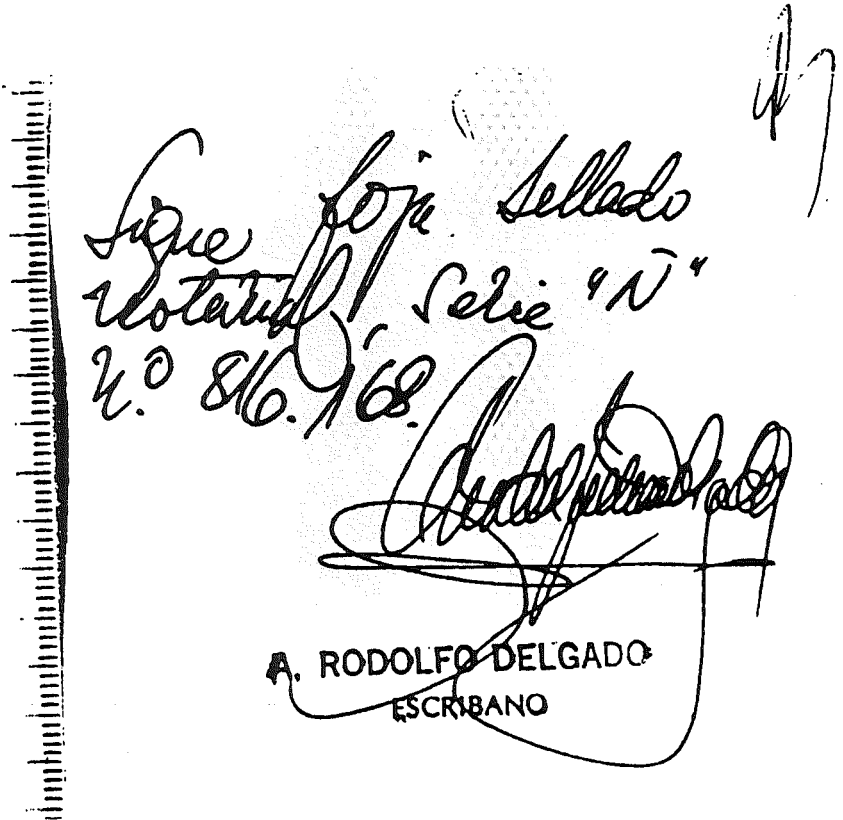 Sigue foja sellado
Notarial, Serie "N"
N.º 816.168.
A. RODOLFO DELGADO
ESCRIBANO